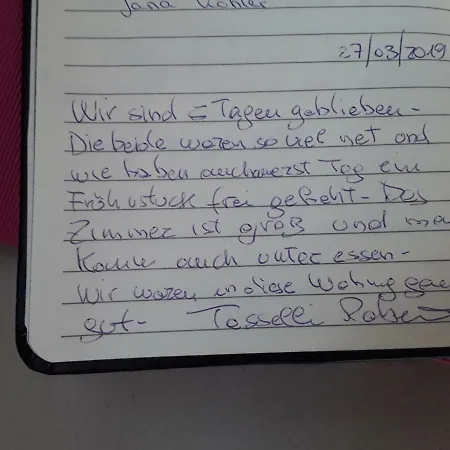 Jana Köhler
27/03/2019
Wir sind 5 Tagen geblieben -
Die beide waren so viel net und
wie haben auch Tag ein
Frühustuck frei geßeht - Das
Zimmer ist groß und man
Kann auch unter essen -
Wir waren in diese Wohnug
gut - Tosselli